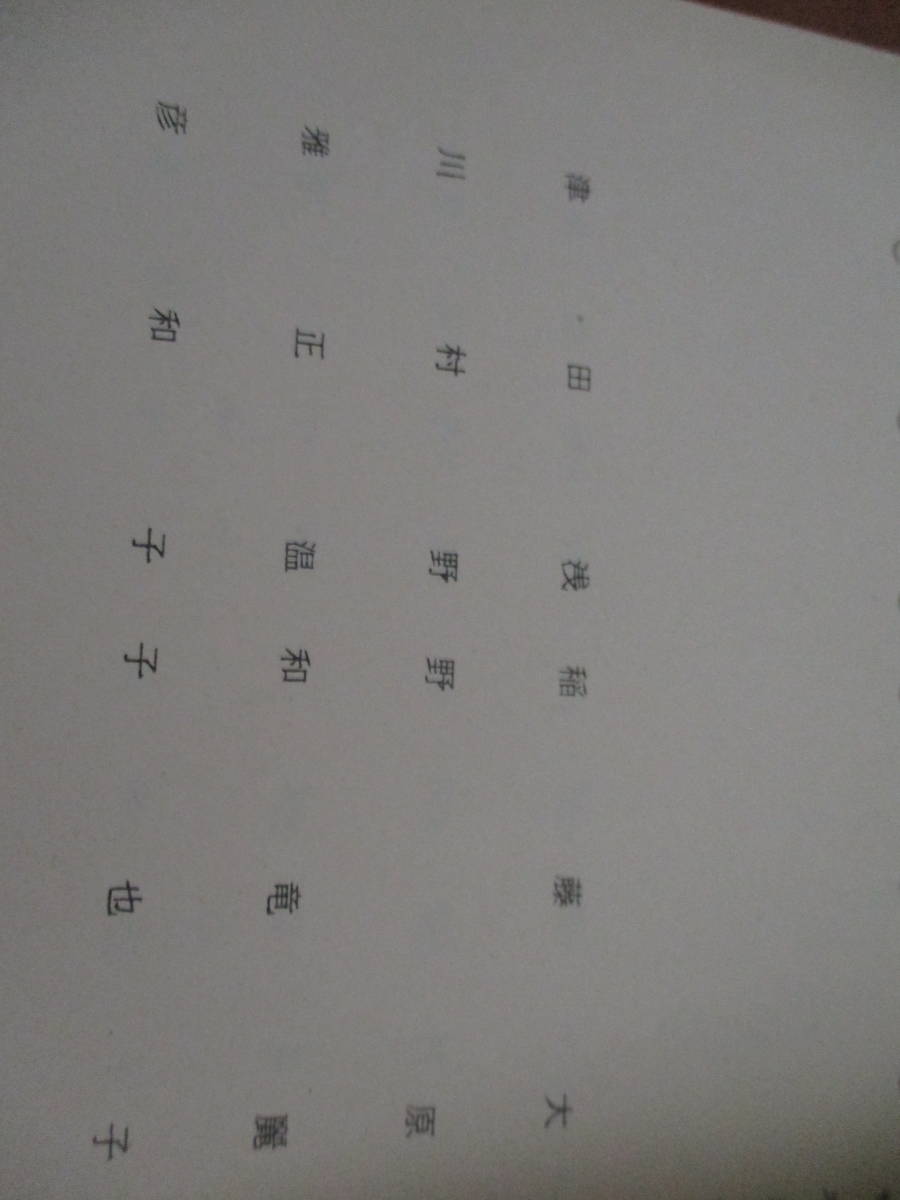 大原麗子
藤竜也
稲野和子
浅野温子
田村正和
津川雅彦